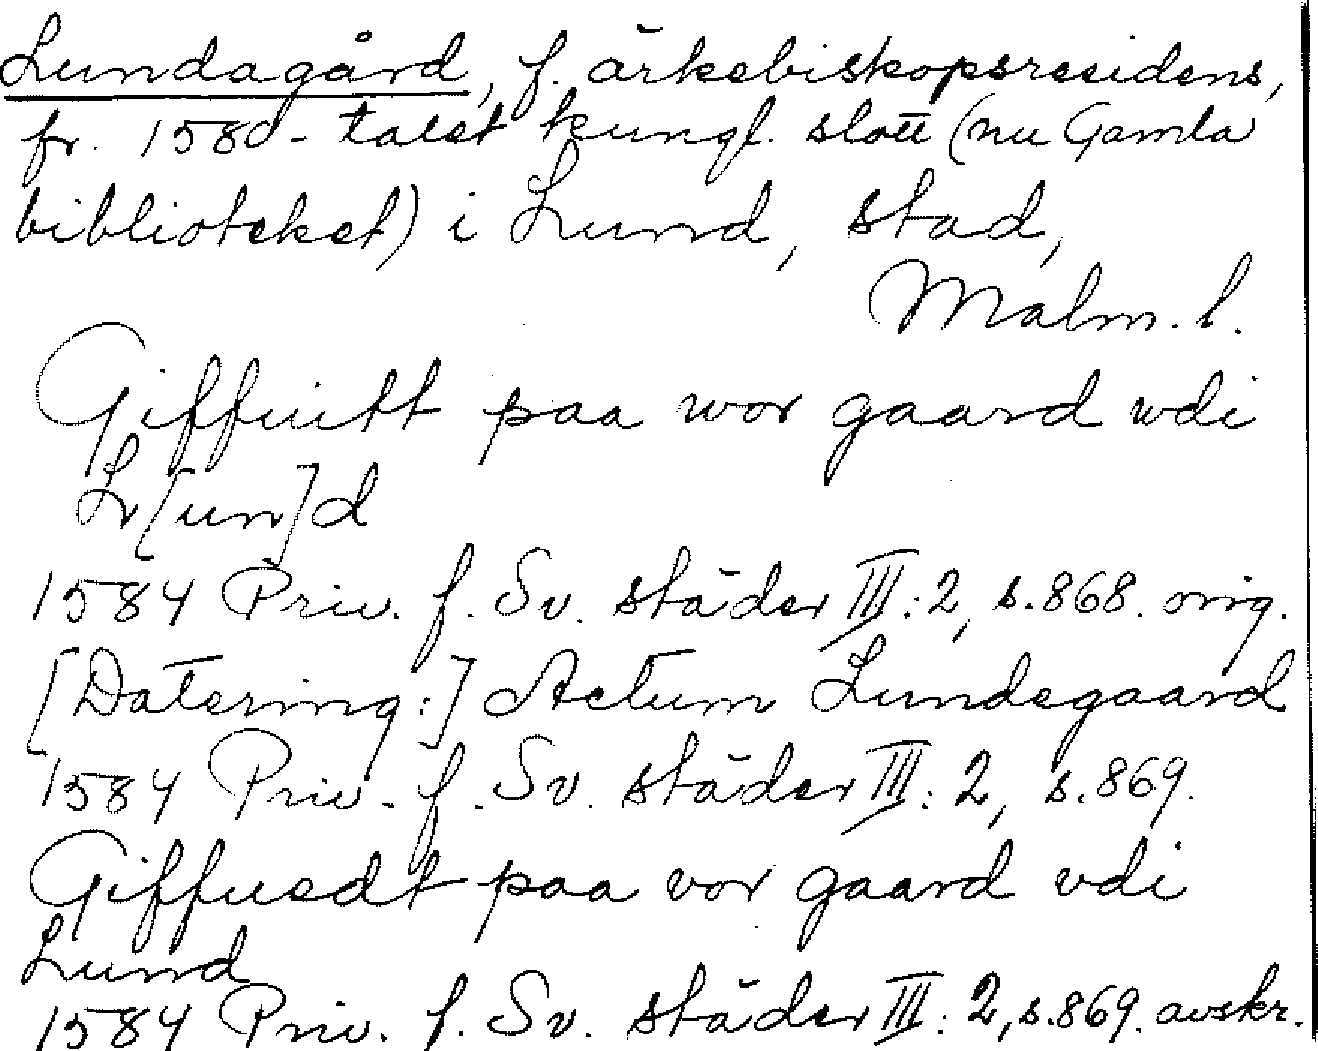 Lundagård, f. ärkebiskopsresidens,
fr. 1580-talet kungl. slott (nu Gamla
biblioteket) i Lund, stad,
Malm. l.
Giffuitt paa wor gaard wdi
L[un]d
1584 Priv. f. Sv. städer III:2, s.868. orig.
[Datering:] Actum Lundegaard
1584 Priv. f. Sv. städer III:2, s.869.
Giffuedt paa vor gaard vdi
Lund
1584 Priv. f. Sv. städer III:2, s.869. avskr.